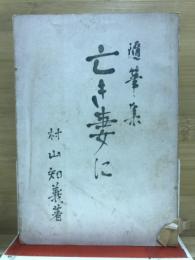 随筆集
亡き妻に
村山知義著